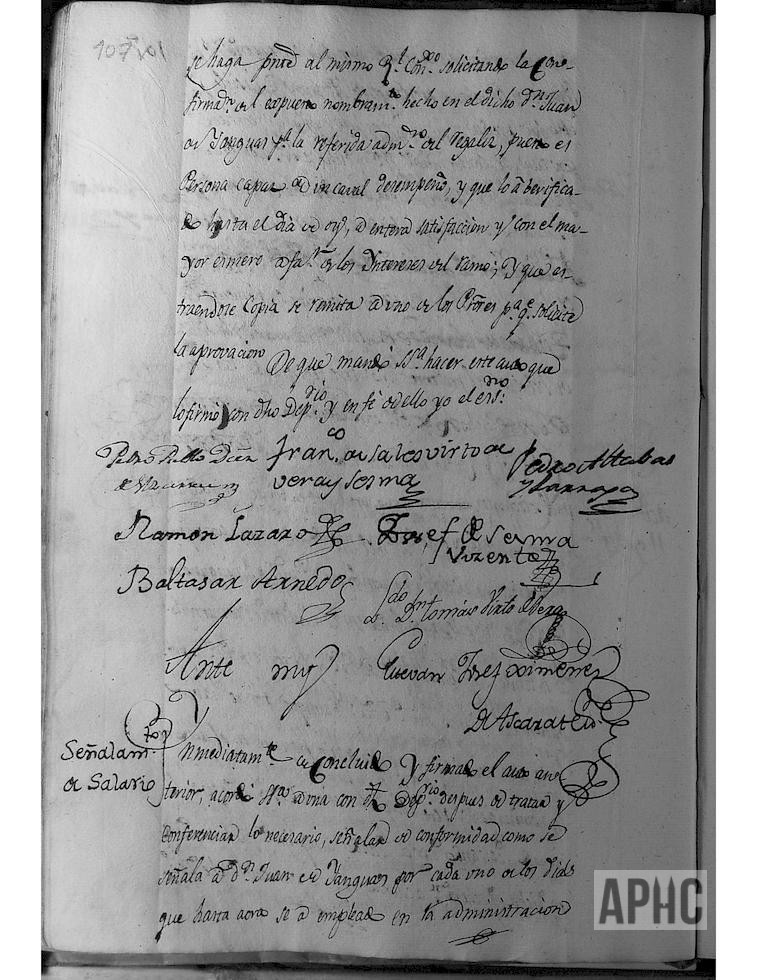 107 vo
se haga pnte al mismo Rl. Conxo. solicitando la Con-
firmasn. del expueso nombramto. hecho en el dicho Dn. Juan
de Yanguas pa. la referida admon. del Regaliz, pues es
Persona capaz de su caval desempeño, y que lo à berifica-
do hasta el dia de oy, à entera satisfaccion y con el ma-
yor esmero à fabr. de los Yntereses del ramo; Y que es-
traendose Copia se remita à uno de los Prōres pa. qe. solicite
la aprovacion De que mando SSa. hacer este auto que
lo firmó con dho Deprio. y en fe de ello yo el essno.
Pedro Pablo Díez
Franco. de Sales Virto de
Vera y Sesma
Pedro Altabas
Ramon Lazaro
Josef de Sesma
Vizente
Baltasar Arnedo
Ldo. Dn. Tomás Virto de Vera
Ante my
Estevan Josef Ximenez
de Ascarate
Señalamto.
de Salario
Ynmediatamte. de Concluido Y firmado el auto an-
terior, acordó SSa. con dho Deprio. despues de tratar y
conferenciar lo necesario, señalar de conformidad como se
señala à Dn. Juan de Yanguas por cada uno de los dias
que hasta aora se à empleado en la administracion
APHC